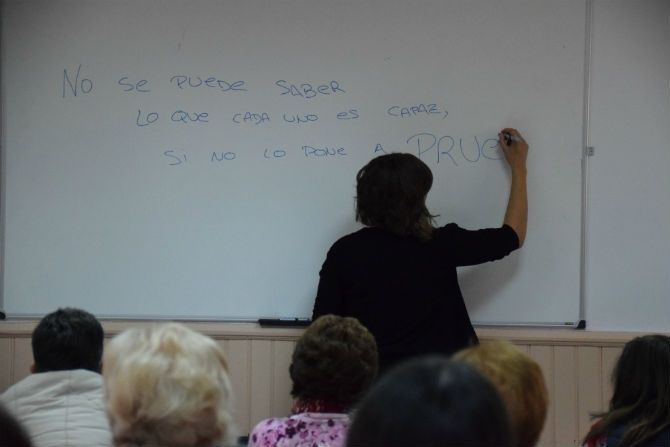 No se puede saber
lo que cada uno es capaz,
si no lo pone a PRUE